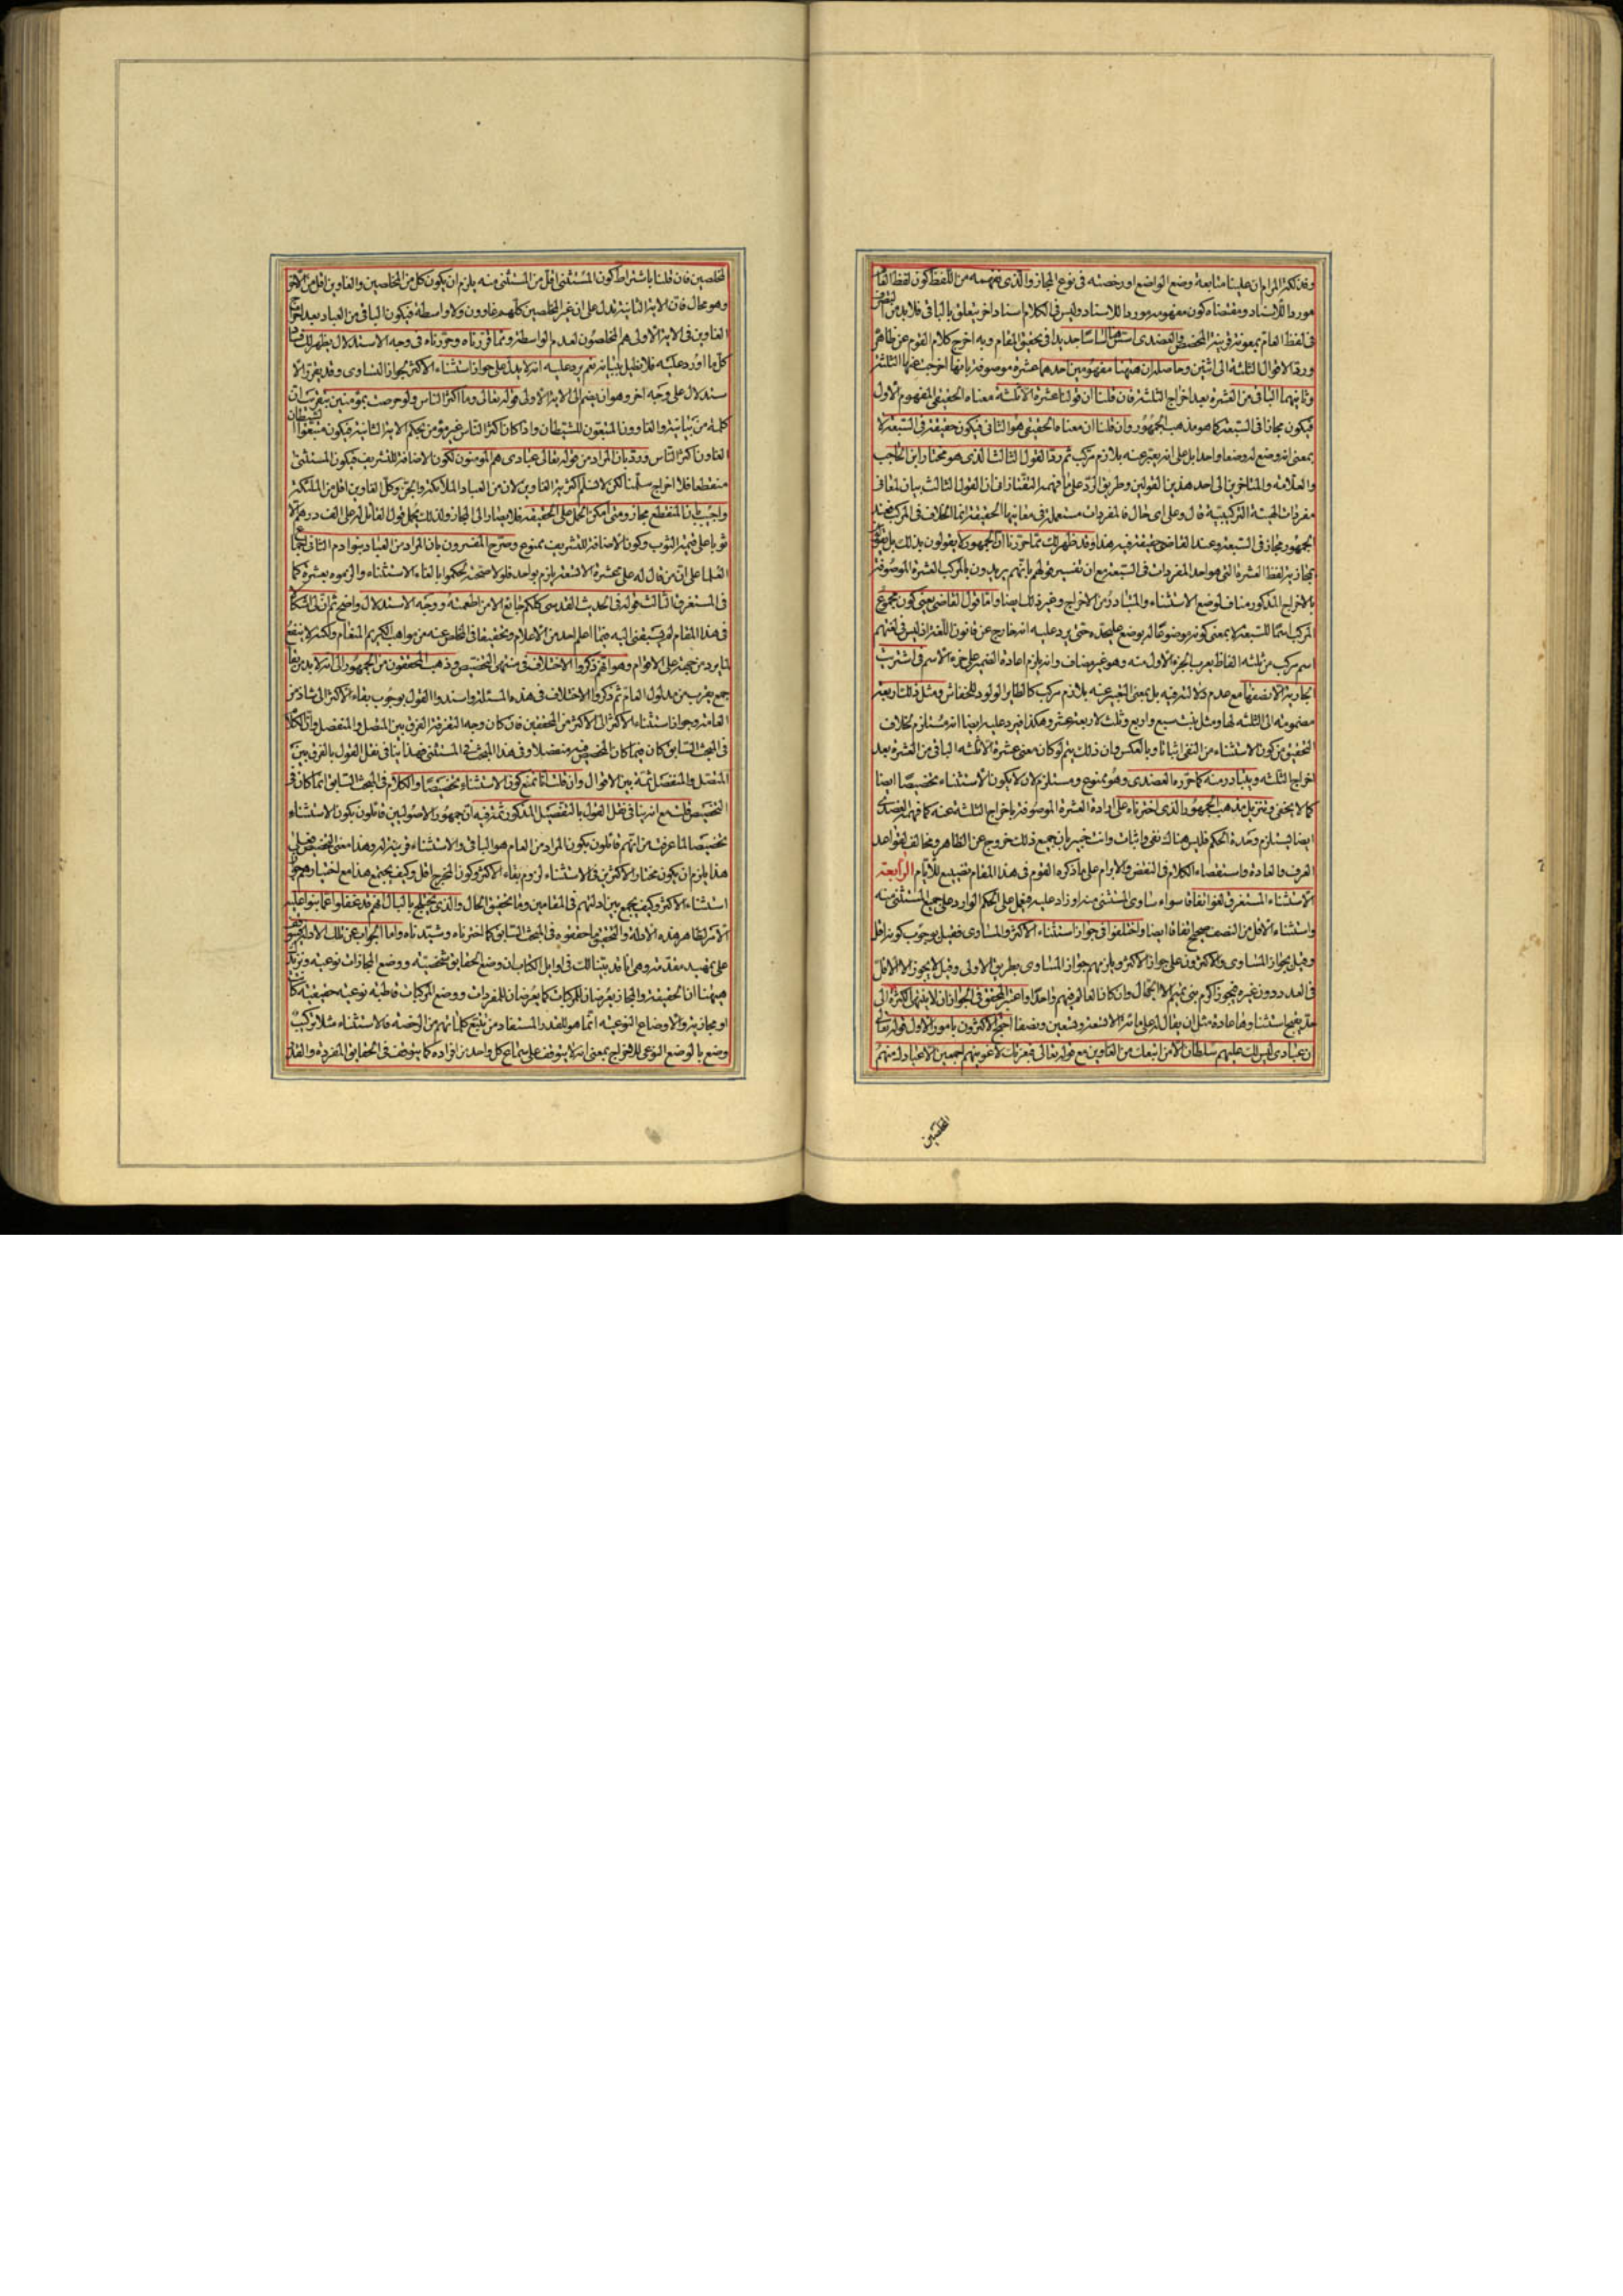 وفذلكة المرام ان علينا متابعة وضع الواضع او رخصته فى نوع المجاز والذى نفهمه من اللفظ كون لفظ العام
موردا للاسناد ومقتضاه كون مفهومه موردا للاسناد وليس فى الكلام اسناد اخر يتعلق بالباقى فلا بد من التصرف
فى لفظ العام بمعونة قرينة المخصص والعضدى اسّس اساسا جديدا فى تحقيق المقام وبه اخرج كلام القوم عن ظاهره
ورد الاقوال الثلثة الى اثنين وحاصله ان ههنا مفهومين احدهما عشرة موصوفة بانها اخرجت عنها الثلثة
وثانيهما الباقى من العشرة بعد اخراج الثلثة فان قلنا ان قولنا عشرة الا ثلثة معناه الحقيقى المفهوم الاول
فيكون مجازا فى السبعة كما هو مذهب الجمهور وان قلنا ان معناه الحقيقى هو الثانى فيكون حقيقة فى السبعة لا
بمعنى انه وضع له وضعا واحدا بل على انه يعبر عنه بلازم مركب ثم رد القول الثالث الذى هو مختار ابن الحاجب
والعلامة والمتاخرين الى احد هذين القولين وطريق الرد على ما فهمه التفتازانى ان القول الثالث بيان لمعانى
مفردات الهيئة التركيبية قال وعلى اى حال فالمفردات مستعملة فى معانيها الحقيقية انما الخلاف فى المركب فعند
الجمهور مجاز فى السبعة وعند القاضى حقيقة فيه هذا وقد ظهر لك مما حررنا ان الجمهور لا يقولون بذلك بل
بمجازية لفظ العشرة التى هو احد المفردات فى السبعة مع ان تفسير قولهم بانهم يريدون بالمركب العشرة الموصوفة
بالاخراج المذكور مناف لوضع الاستثناء والمتبادر من الاخراج وغير ذلك ايضا واما قول القاضى يعنى كون مجموع
المركب اسما للسبعة لا بمعنى كونه موضوعا له بوضع عليحدة حتى يرد عليه انه خارج عن قانون اللغة اذ ليس فى لغتهم
اسم مركب من ثلثة الفاظ يعرب الجزء الاول منه وهو غير مضاف وانه يلزم اعادة الضمير على جزء الاسم فى اشتريت
الجارية الا نصفها مع عدم دلالته فيه بل بمعنى التعبير عنه بلازم مركب كالطاير الولود للخفاش ومثل ذلك اربعة
مضمومة الى الثلثة لها ومثل بنت سبع واربع وثلث لاربعة عشر وهكذا فيرد عليه ايضا انه مستلزم لخلاف
التحقيق من كون الاستثناء من النفى اثباتا وبالعكس وان ذلك يتم لو كان معنى عشرة الا ثلثة الباقى من العشرة بعد
اخراج الثلثة ويتبادر منه كما حرره العضدى وهو ممنوع ومستلزم لان لا يكون الاستثناء مخصصا ايضا
كما لا يخفى وتنزيل مذهب الجمهور الذى اخترناه على ارادة العشرة الموصوفة باخراج الثلثة عنه كما فهمه العضدى
ايضا يستلزم وحدة الحكم فليس هناك نفى واثبات وانت خبير بان جميع ذلك خروج عن الظاهر ومخالف لقواعد
العرف والعادة واستقصاء الكلام فى النقض والابرام على ما ذكره القوم فى هذا المقام تضييع للايام الرابعة
الاستثناء المستغرق لغو اتفاقا سواء ساوى المستثنى منه او زاد عليه فيعمل على الحكم الوارد على جميع المستثنى منه
واستثناء الاقل من النصف صحيح اتفاقا ايضا واختلفوا فى جواز استثناء الاكثر والمساوى فقيل بوجوب كونه اقل
وقيل بجواز المساوى والاكثرون على جواز الاكثر ويلزمهم جواز المساوى بطريق الاولى وقيل لا يجوز الا الاقل
فى العدد دون غيره فيجوز اكرم بنى تميم الا الجهال وان كان العالم فيهم واحدا واعتبر المحقق فى الجواز ان لا ينتهى الكثرة الى
حد يقبح استثناؤها عادة مثل ان يقال له على مائة الا تسعة وتسعين ونصفا احتج الاكثرون بامور الاول قوله تعالى
ان عبادى ليس لك عليهم سلطان الا من اتبعك من الغاوين مع قوله تعالى فبعزتك لاغوينهم اجمعين الا عبادك منهم
المخلصين
المخلصين فان قلنا باشتراط كون المستثنى اقل من المستثنى منه يلزم ان يكون كل من المخلصين والغاوين اقل من الاخر
وهو محال فان الاية الثانية تدل على ان غير المخلصين كلهم غاوون ولا واسطة فيكون الباقى من العباد بعد اخراج
الغاوين فى الاية الاولى هم المخلصون لعدم الواسطة ومما قررناه وحررناه فى وجه الاستدلال يظهر لك
كل ما اورد عليه فلا نطيل ببيانه نعم يرد عليه انه لا يدل على جواز استثناء الاكثر لجواز التساوى وقد يقرر الا
ستدلال على وجه اخر وهو ان يضم الى الاية الاولى قوله تعالى وما اكثر الناس ولو حرصت بمؤمنين بتقريب ان
كلمة من بيانية والغاوون المتبعون للشيطان واذا كان اكثر الناس غير مؤمن بحكم الاية الثانية فيكون متبعوا الشيطان
الغاون اكثر الناس ورد بان المراد من قوله تعالى عبادى هم المؤمنون لكون الاضافة للتشريف فيكون المستثنى
منقطعا فلا اخراج سلمنا لكن لا نسلم اكثرية الغاوين لان من العباد الملائكة والجن وكل الغاوين اقل من الملئكة
واجيب بان المنقطع مجاز ومتى امكن الحمل على الحقيقة فلا يصار الى المجاز ولذلك يحمل قول القائل له على الف درهم الا
ثوبا على قيمة الثوب وكون الاضافة للتشريف ممنوع وصرح المفسرون بان المراد من العباد بنو ادم الثانى اجماع
العلماء على ان من قال له على عشرة الا تسعة يلزم بواحد فلولا صحته لحكموا بالغاء الاستثناء والزموه بعشرة كما
فى المستغرق الثالث قوله فى الحديث القدسى كلكم جائع الا من اطعمته ووجه الاستدلال واضح ثم ان لى اشكالا
فى هذا المقام لم يسبقنى اليه فيما اعلم احد من الاعلام وتحقيقا فى التخلص عنه من مواهب الكريم المنعام ولكنه لا ينفع
لما يرد من جهته على الاقوام وهو انهم ذكروا الاختلاف فى منتهى التخصيص وذهب المحققون من الجمهور الى انه لا بد من بقاء
جمع يقرب من مدلول العام ثم ذكروا الاختلاف فى هذه المسئلة واسندوا القول بوجوب بقاء الاكثر الى شاذ من
العامة وجواز استثناء الاكثر الى الاكثر من المحققين فان كان وجه التفرقة الفرق بين المتصل والمنفصل وان الكلام
فى المبحث السابق كان فيما كان المخصص فيه منفصلا وفى هذا المبحث فى المستثنى فهذا ينافى نقل القول بالفرق بين
المتصل والمنفصل ثمة بين الاقوال وان قلت انا نمنع كون الاستثناء مخصصا والكلام فى المبحث السابق انما كان فى
التخصيص قلت مع انه ينافى نقل القول بالتفصيل المذكور ثمة فيه ان جمهور الاصوليين قائلون بكون الاستثناء
تخصيصا لما عرفت من انهم قائلون بكون المراد من العام هو الباقى والاستثناء قرينة له وهذا معنى التخصيص فعلى
هذا يلزم ان يكون مختار الاكثرين فى الاستثناء لزوم بقاء الاكثر وكون المخرج اقل وكيف يجتمع هذا مع اختيارهم جواز
استثناء الاكثر وكيف يجمع بين ادلتهم فى المقامين وما تحقيق الحال والذى يختلج بالبال انهم قد غفلوا عما بنوا عليه
الامر لظاهر هذه الادلة والتحقيق ما حققوه فى المبحث السابق كما اخترناه وشيدناه واما الجواب عن تلك الادلة
على تمهيد مقدمة وهى انا قد بينا لك فى اوايل الكتاب ان وضع الحقايق شخصية ووضع المجازات نوعية ونزيدك
ههنا ان الحقيقة والمجاز يعرضان للمركبات كما يعرضان للمفردات ووضع المركبات قاطبة نوعية حقيقية كانت
او مجازية والاوضاع النوعية انما هو للقدر المستفاد من تتبع كلماتهم من الرخصة فالاستثناء مثلا تركيب
وضع بالوضع النوعى للاخراج بمعنى انه لا يتوقف على سماع كل واحد من افراده كما يتوقف فى الحقايق المفردة والقدر